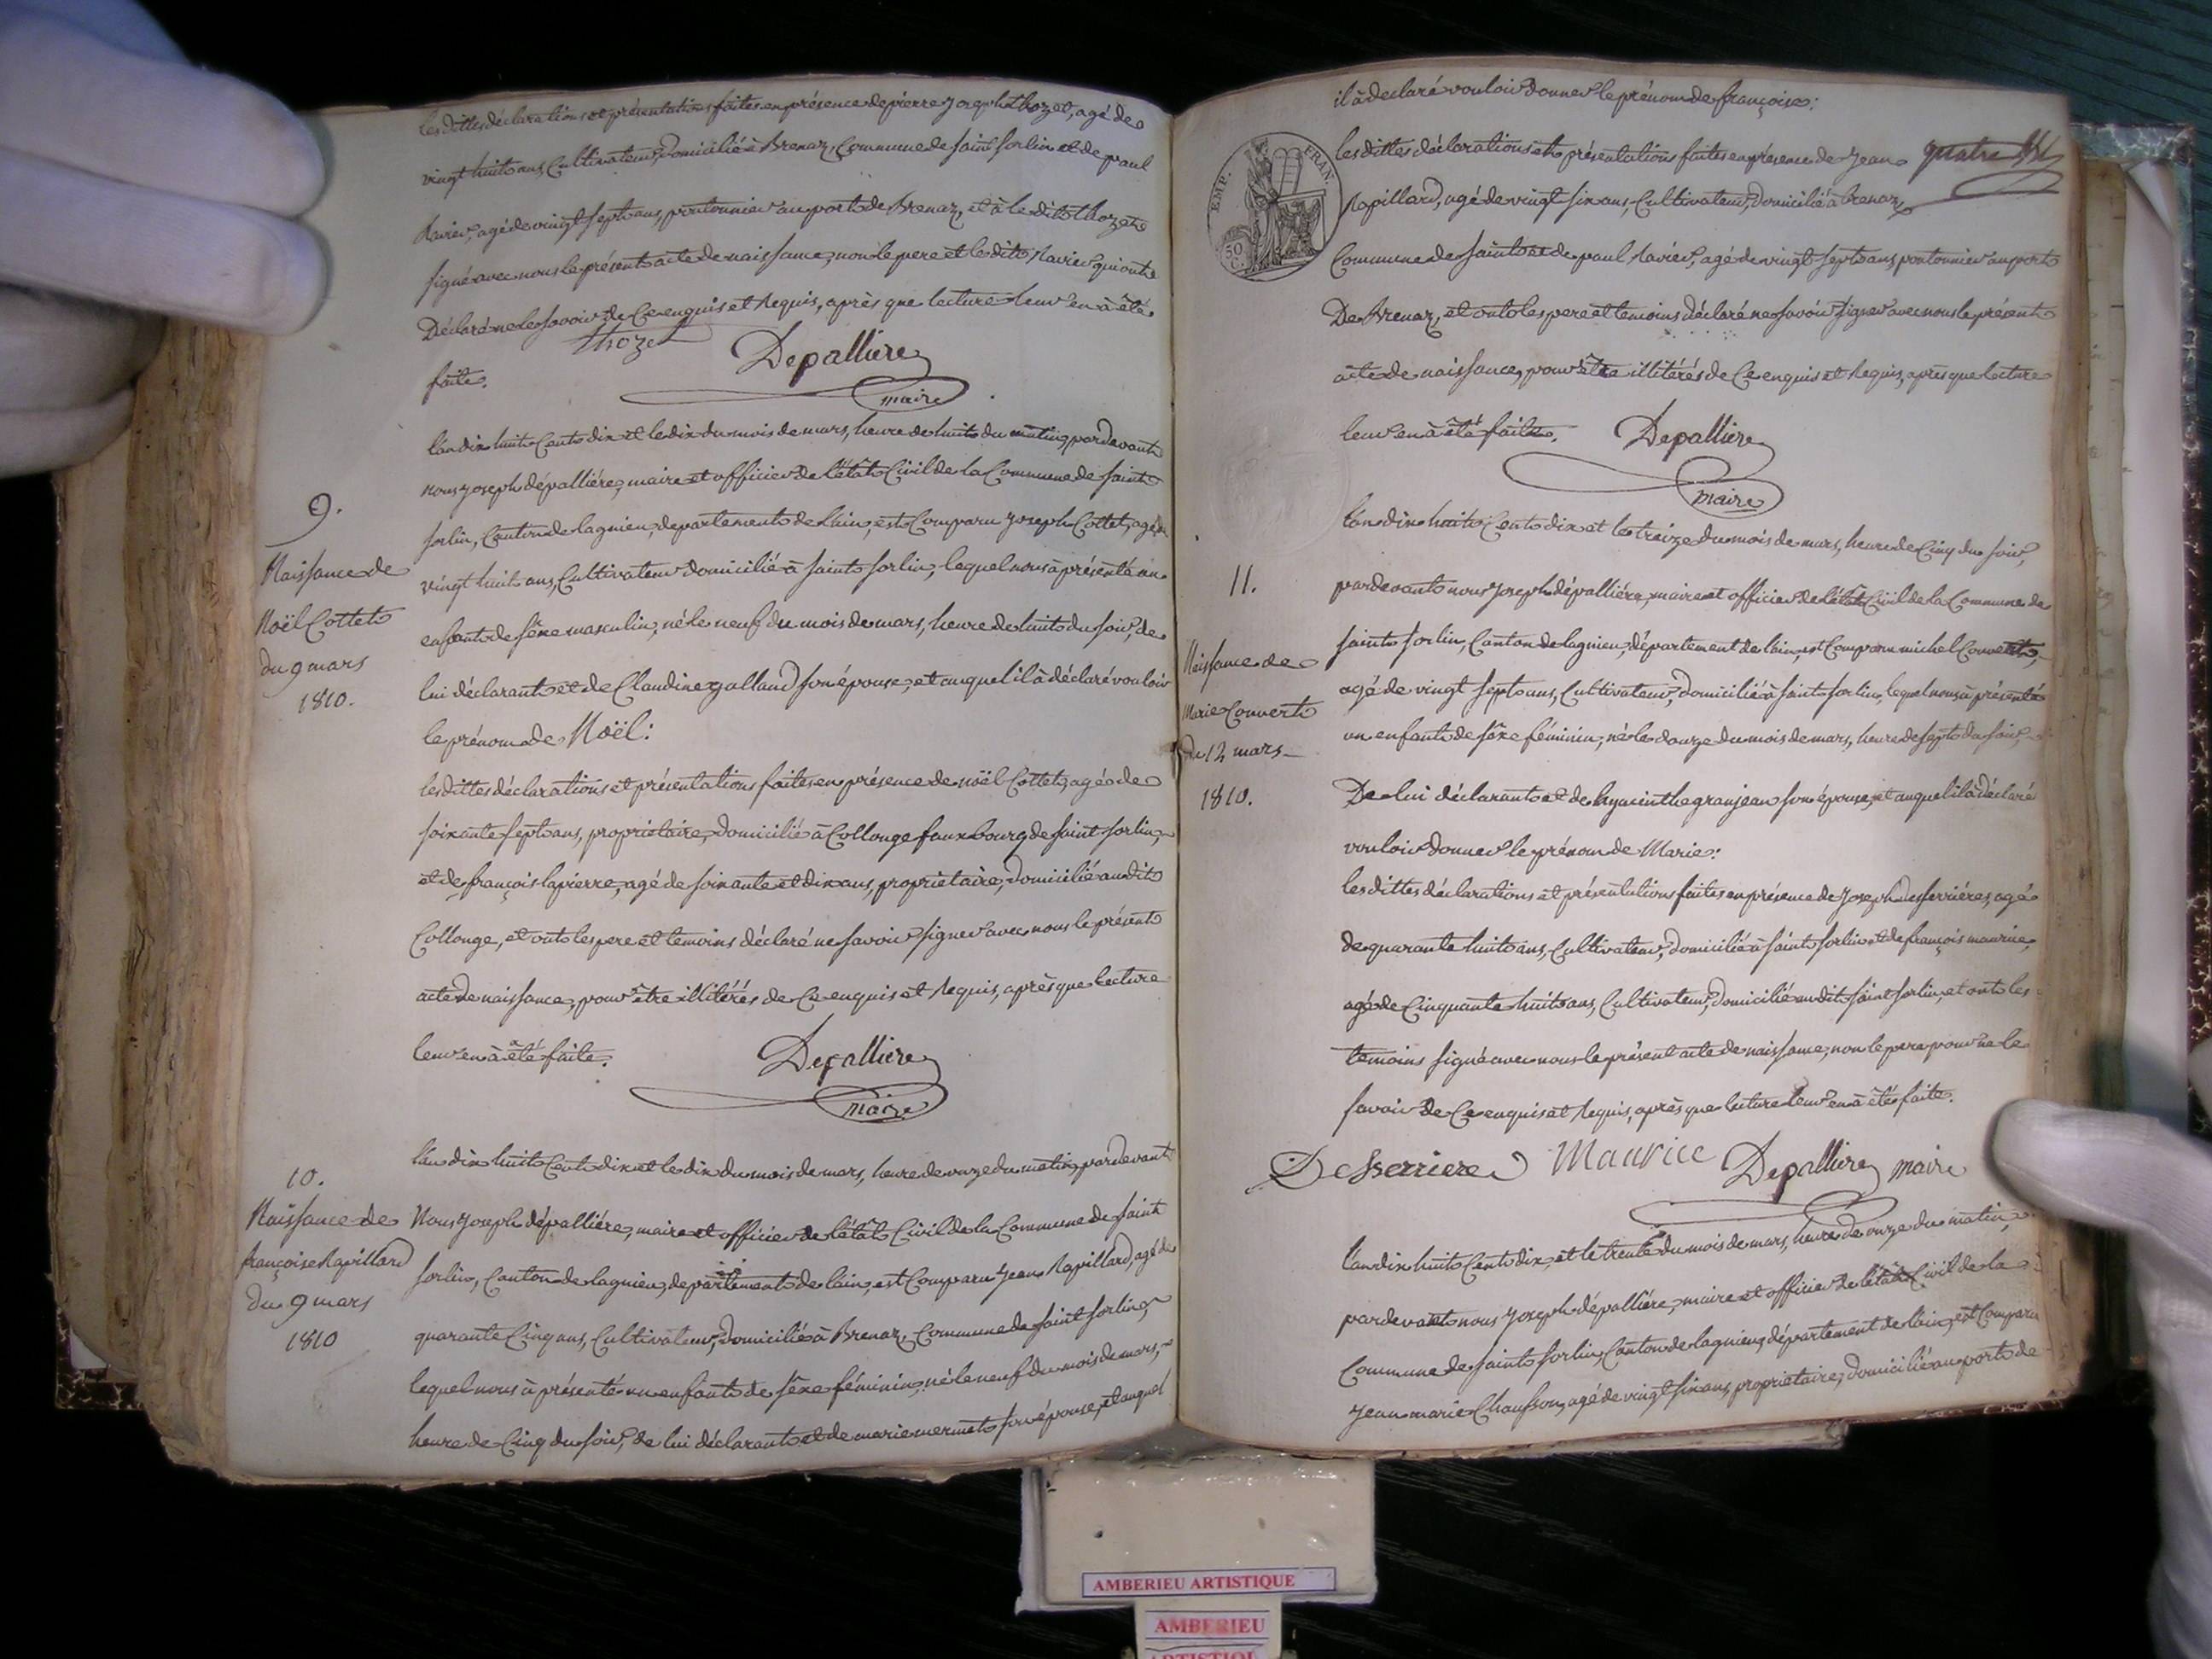 les dittes déclarations et présentations faites en présence de pierre joseph thozet, agé de
vingt huit ans, Cultivateur, domicilié à Brenaz, Commune de saint sorlin et de paul
Ravier, agé de vingt sept ans, pontonnier au port de Brenaz, et à le dit thozet
signé avec nous le présent acte de naissance, non le pere et le dit Ravier qui ont
Déclaré ne le savoir de Ce enquis et Requis, après que lecture leur en à été
thozet
faite.
Depalliere
maire
9.
Naissance de
Noël Cottet
du 9 mars
1810.
l'an dix huit Cent dix et le dix du mois de mars, heure de huit du matin, pardevant
nous joseph dépalliére, maire et officier de l'état Civil de la Commune de saint
sorlin, Canton de lagnieu, departement de l'ain, est Comparu joseph Cottet, agé
vingt huit ans, Cultivateur domicilié à saint sorlin, lequel nous à présenté un
enfant de sêxe masculin, né le neuf du mois de mars, heure de huit du soir, de
lui déclarant et de Claudine galland son épouse, et auquel il à déclaré vouloir
le prénom de Noël:
les dittes déclarations et présentations faites en présence de noël Cottet, agé de
soixante sept ans, propriétaire, domicilié à Collonge fauxbourg de saint sorlin,
et de françois lapierre, agé de soixante et dix ans, propriétaire, domicilié au dit
Collonge, et ont les pere et temoins déclaré ne savoir signer avec nous le présent
acte de naissance, pour être illitérés de Ce enquis et Requis, après que lecture
leur en à été faite.
Depalliere
maire
10.
Naissance de
françoise Rapillard
du 9 mars
1810
l'an dix huit Cent dix et le dix du mois de mars, heure de onze du matin, pardevant
Nous joseph dépalliére, maire et officier de l'état Civil de la Commune de saint
sorlin, Canton de lagnieu, departement de l'ain, est Comparu jean Rapillard, agé de
quarante Cinq ans, Cultivateur, domicilié à Brenaz, Commune de saint sorlin,
lequel nous à présenté un enfant de sêxe féminin, né le neuf du mois de mars,
heure de Cinq du soir, de lui déclarant et de marie mermet son épouse, et auquel
il à declaré vouloir donner le prénom de françoise:
EMP. FRAN.
50
C.
les dittes déclarations et présentations faites en présence de jean
quatre
Rapillard, agé de vingt six ans, Cultivateur, domicilié à brenaz,
Commune de saint et de paul Ravier, agé de vingt sept ans, pontonnier au port
De Brenaz, et ont les pere et temoins déclaré ne savoir signer avec nous le présent
acte de naissance, pour être illitérés de Ce enquis et Requis, après que lecture
leur en à été faite.
Depalliere
maire
11.
Naissance de
Marie Convert
du 12 mars
1810.
l'an dix huit Cent dix et le treize du mois de mars, heure de Cinq du soir,
pardevant nous joseph dépalliére, maire et officier de l'état Civil de la Commune de
saint sorlin, Canton de lagnieu, département de l'ain, est Comparu michel Convert,
agé de vingt sept ans, Cultivateur, domicilié à saint sorlin, lequel nous à présenté
un enfant de sêxe féminin, né le douze du mois de mars, heure de sept du soir,
De lui déclarant et de hyacinthe granjean son épouse, et auquel il à déclaré
vouloir donner le prénom de Marie:
les dittes déclarations et présentations faites en présence de joseph desferriéres, agé
de quarante huit ans, Cultivateur, domicilié à saint sorlin et de françois maurice,
agé de Cinquante huit ans, Cultivateur, domicilié au dit saint sorlin, et ont les
temoins signé avec nous le présent acte de naissance, non le pere pour ne le
savoir de Ce enquis et Requis, après que lecture leur en à été faite.
Desserriere Maurice Depalliere maire
l'an dix huit Cent dix, et le trente du mois de mars, heure de onze du matin,
pardevant nous joseph dépalliére, maire et officier de l'état Civil de la
Commune de saint sorlin, Canton de lagnieu, département de l'ain, est Comparu
jean marie Chausson, agé de vingt six ans, propriétaire, domicilié au port de
AMBERIEU ARTISTIQUE
AMBERIEU
ARTISTIQUE